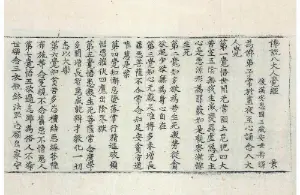 佛說八大人覺經
後漢安息國三藏安世高譯
為佛弟子常於晝夜至心誦念八
大人覺
第一覺悟世間無常國土危脆四大
苦空五陰無我生滅變異虛偽無主
心是惡源形為罪藪如是觀察漸離
生死
第二覺知多欲為苦生死疲勞從貪
欲起少欲無為身心自在
第三覺知心無厭足唯得多求增長
罪惡菩薩不爾常念知足安貧守道
唯慧是業
第四覺知懈怠墜落常行精進破煩
惱惡摧伏四魔出陰界獄
第五覺悟愚癡生死菩薩常念廣學
多聞增長智慧成就辯才教化一切
悉以大樂
第六覺知貧苦多怨橫結惡緣菩薩
布施等念怨親不念舊惡不憎惡人
第七覺悟五欲過患雖為俗人不染
世樂念三衣瓦鉢法器志願出家守